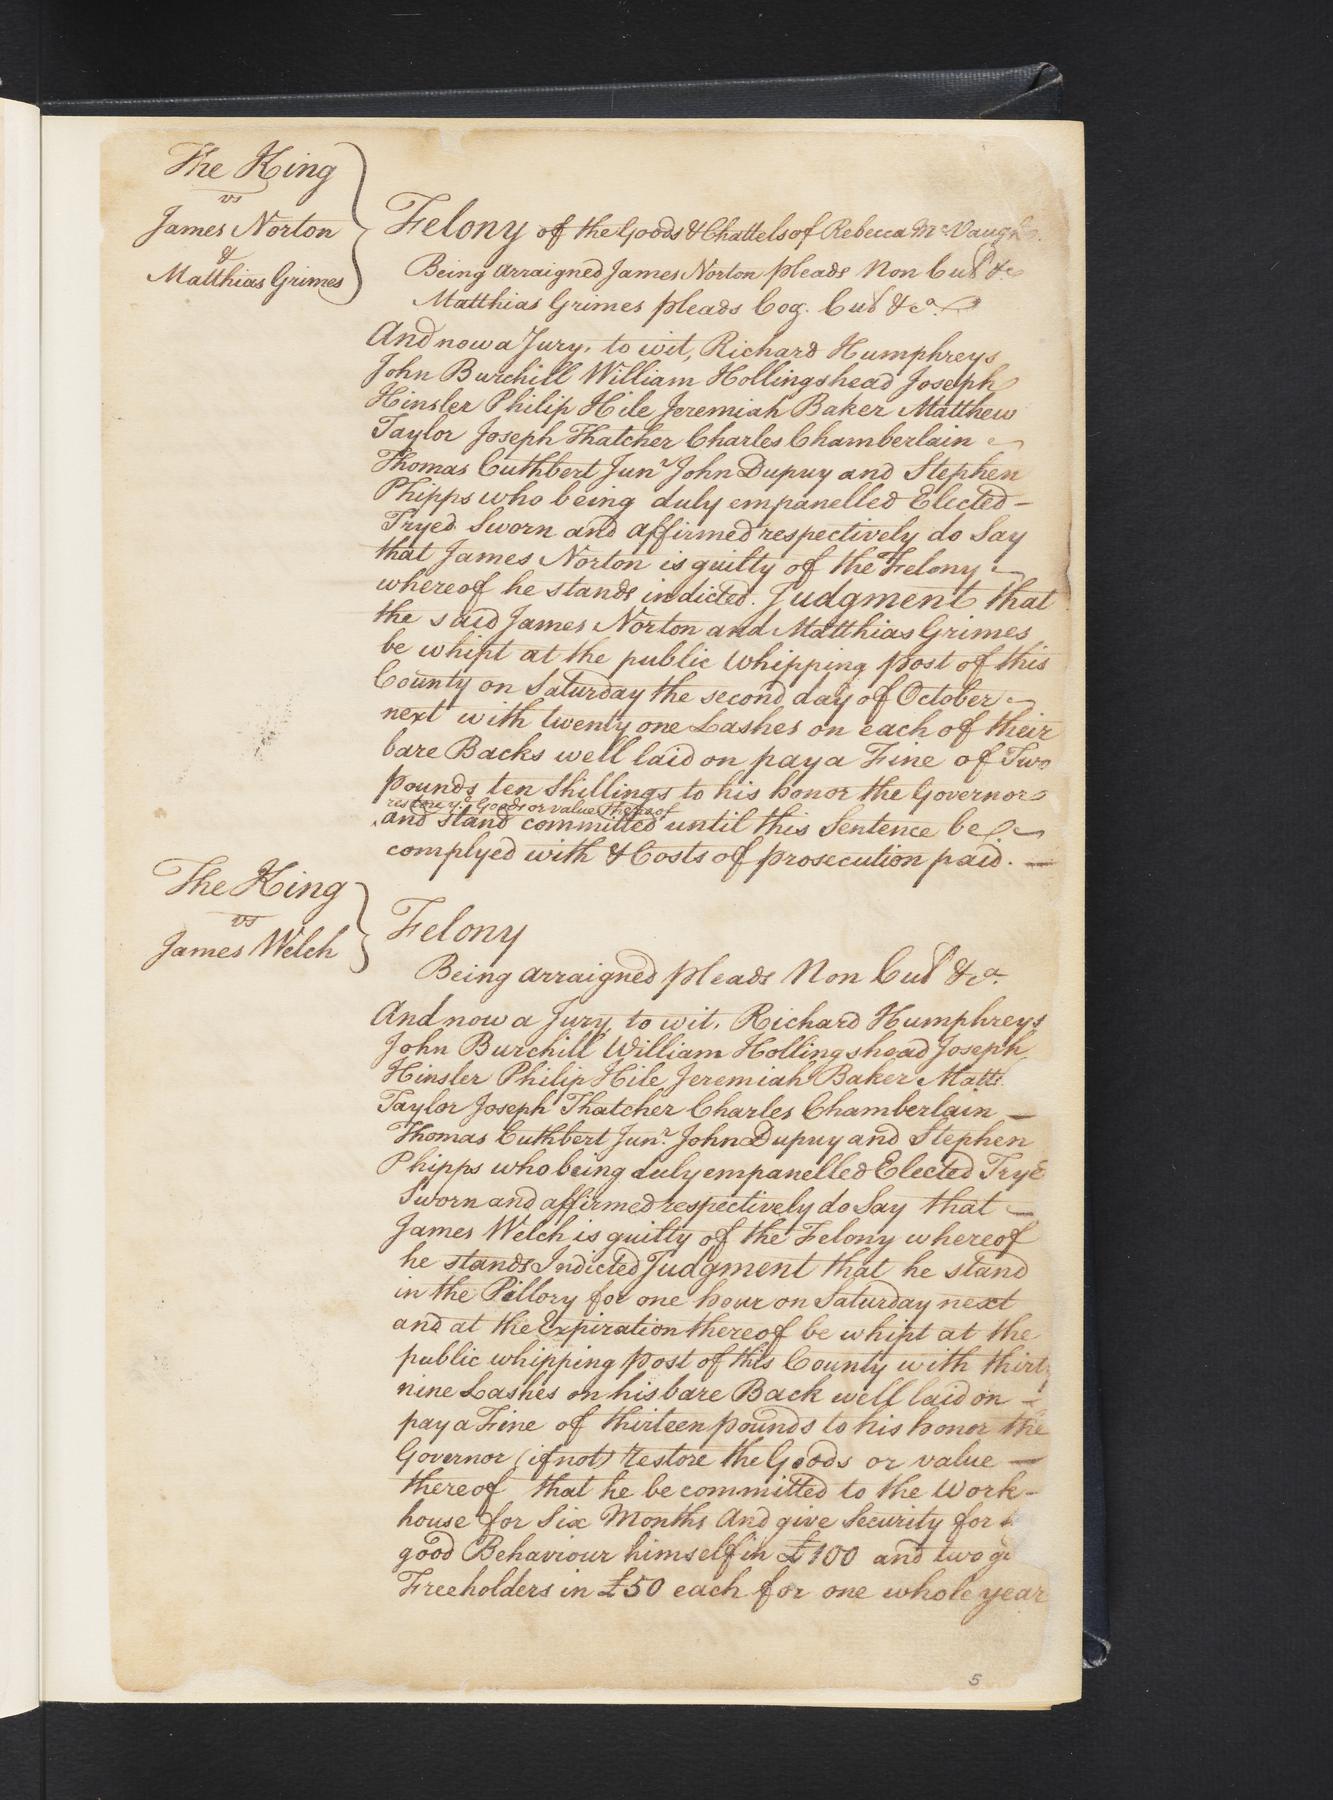 The King
vs
James Norton
&
Matthias Grimes
Felony of the Goods & Chattels of Rebecca McVaugh
Being arraigned James Norton pleads Non Cul &c
Matthias Grimes pleads Cog. Cul &ca
And now a Jury, to wit, Richard Humphreys
John Burchill William Hollingshead Joseph
Hinsler Philip Hile Jeremiah Baker Matthew
Taylor Joseph Thatcher Charles Chamberlain
Thomas Cuthbert Junr John Dupuy and Stephen
Phipps who being duly empanelled Elected –
Tryed Sworn and affirmed respectively do Say
that James Norton is guilty of the Felony
whereof he stands indicted. Judgment that
the said James Norton and Matthias Grimes
be whipt at the public Whipping post of this
County on Saturday the second day of October
next with twenty one Lashes on each of their
bare Backs well laid on pay a Fine of Two
pounds ten Shillings to his honor the Governor
restore ye Goods or value thereof
and stand committed until this Sentence be
complyed with & Costs of prosecution paid. —
The King
vs
James Welch
Felony
Being arraigned pleads Non Cul &ca.
And now a Jury, to wit, Richard Humphreys
John Burchill William Hollingshead Joseph
Hinsler Philip Hile Jeremiah Baker Matt
Taylor Joseph Thatcher Charles Chamberlain —
Thomas Cuthbert Junr. John Dupuy and Stephen
Phipps who being duly empanelled Elected Trye
Sworn and affirmed respectively do Say that —
James Welch is guilty of the Felony whereof
he stands Indicted Judgment that he stand
in the Pillory for one hour on Saturday next
and at the Expiration thereof be whipt at the
public whipping post of this County with thirt
nine Lashes on his bare Back well laid on —
pay a Fine of thirteen pounds to his honor the
Governor (if not) restore the Goods or value —
thereof that he be committed to the Work-
house for Six Months And give Security for
good Behaviour himself in £100 and two
Freeholders in £50 each for one whole year
5